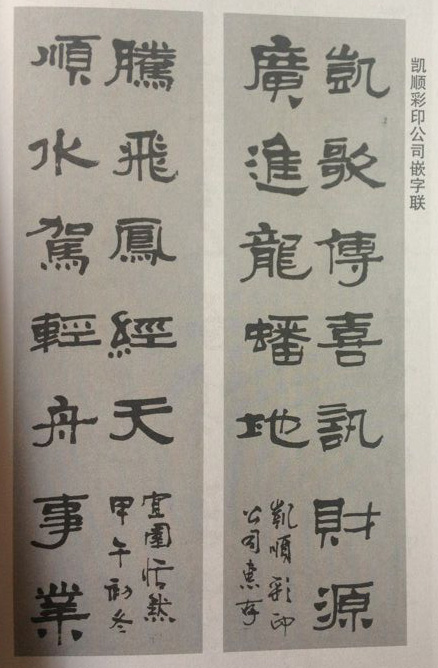 凯顺彩印公司嵌字联
凱歌傳喜訊財源
廣進龍蟠地
凱順彩印
公司惠存
順水駕輕舟事業
騰飛鳳經天
甲午初冬
宜園恬然